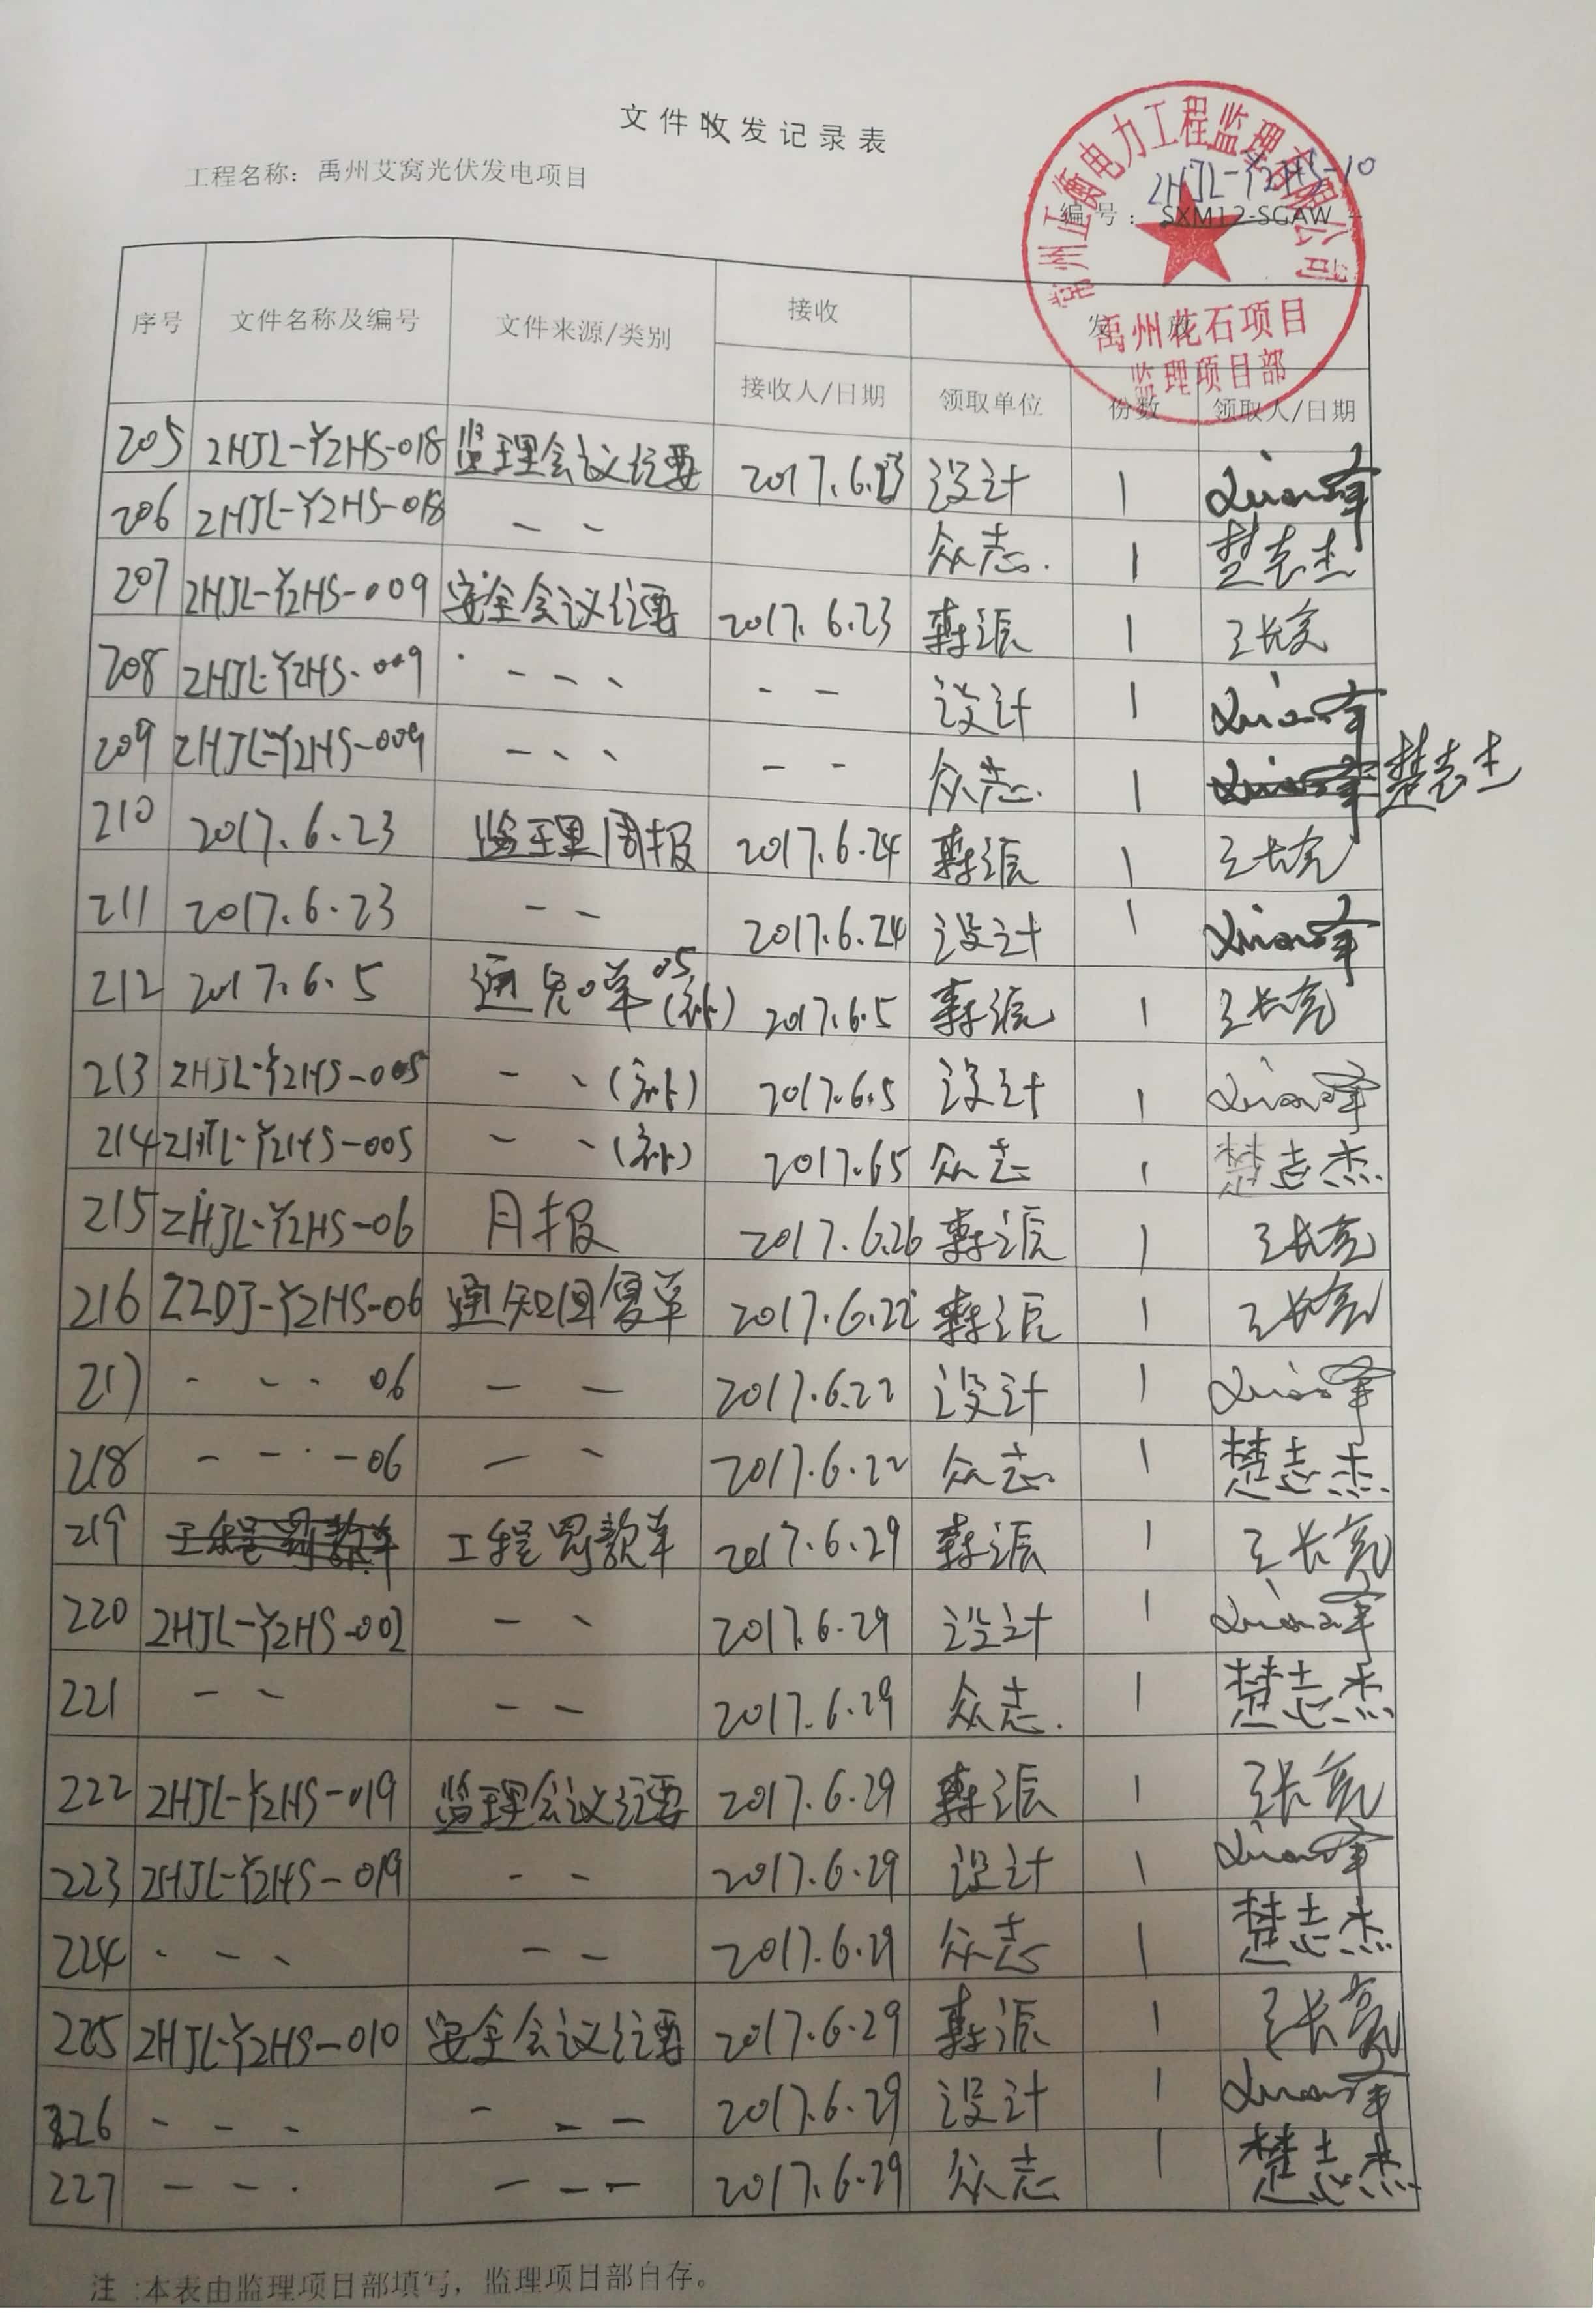 文件收发记录表
工程名称：禹州艾窝光伏发电项目
ZHJL-YZHS-10
编号：SXM12-SGAW-
常州正衡电力工程监理有限公司
禹州花石项目
监理项目部
序号 文件名称及编号 文件来源/类别 接收 发放
接收人/日期 领取单位 份数 领取人/日期
205 ZHJL-YZHS-018 监理会议纪要 2017.6.23 设计 1
206 ZHJL-YZHS-018 - - 众志. 1 楚志杰
207 ZHJL-YZHS-009 安全会议纪要 2017.6.23 森源 1 王长亮
208 ZHJL-YZHS-009 - - - - - 设计 1
209 ZHJL-YZHS-009 - - - - - 众志. 1 楚志杰
210 2017.6.23 监理周报 2017.6.24 森源 1 王长亮
211 2017.6.23 - - 2017.6.24 设计 1
212 2017.6.5 通知单05(补) 2017.6.5 森源 1 王长亮
213 ZHJL-YZHS-005 - - (补) 2017.6.5 设计 1
214 ZHJL-YZHS-005 - - (补) 2017.65 众志 1 楚志杰
215 ZHJL-YZHS-06 月报 2017.6.26 森源 1 王长亮
216 ZZDJ-YZHS-06 通知回复单 2017.6.22 森源 1 王长亮
217 - - - 06 - - 2017.6.22 设计 1
218 - - - -06 - - 2017.6.22 众志. 1 楚志杰
219 工程罚款单 工程罚款单 2017.6.29 森源 1 王长亮
220 ZHJL-YZHS-002 - - 2017.6.29 设计 1
221 - - - - 2017.6.29 众志. 1 楚志杰
222 ZHJL-YZHS-019 监理会议纪要 2017.6.29 森源 1 王长亮
223 ZHJL-YZHS-019 - - 2017.6.29 设计 1
224 - - - - - 2017.6.29 众志 1 楚志杰
225 ZHJL-YZHS-010 安全会议纪要 2017.6.29 森源 1 王长亮
226 - - - - - - 2017.6.29 设计 1
227 - - - - - - 2017.6.29 众志 1 楚志杰
注：本表由监理项目部填写，监理项目部自存。